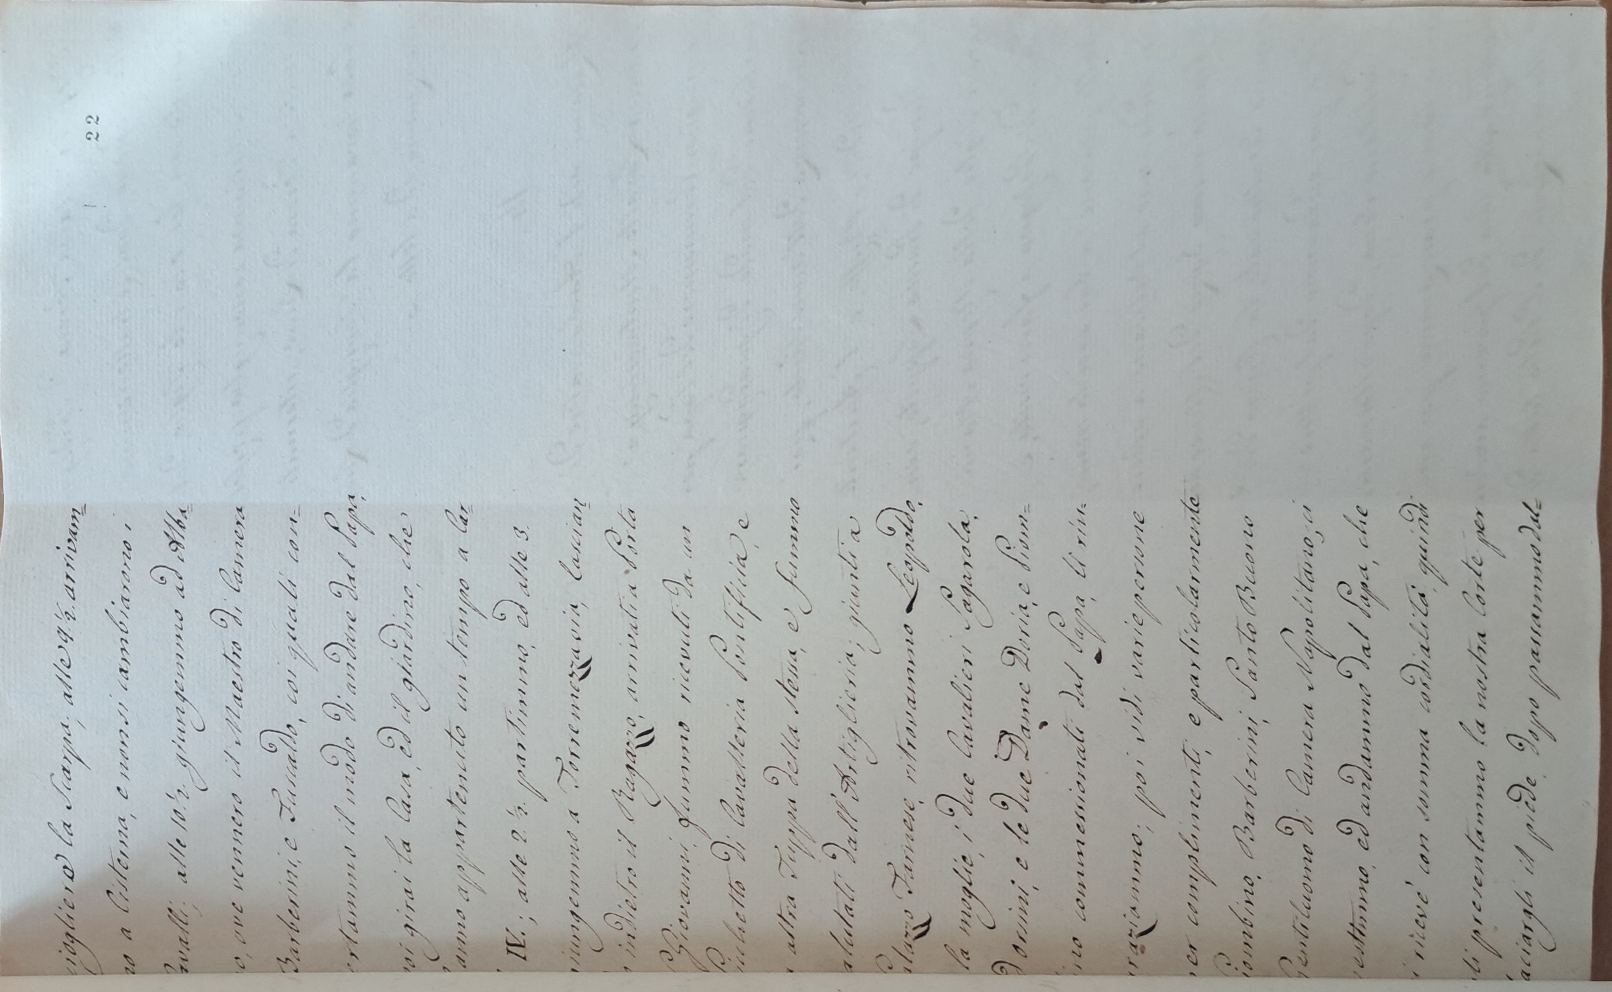 22
ciogliere la Scarpa; alle 9 ½ arrivam=
no a Cisterna, e non si cambiarono i
Cavalli; alle 10 ½ giungemmo ad Alba=
no, ove vennero il Maestro di Camera
Barberini, e Fuscaldo, coi quali con=
certammo il modo di andare dal Papa,
poi girai la Casa, ed il giardino, che
hanno appartenuto un tempo a Car=
IV.; alle 2 ½ partimmo, ed alle 3.
giungemmo a Torremezzavia, lascian=
indietro il Ragazzo, arrivati a Porta
S. Giovanni, fummo ricevuti da un
Picchetto di Cavalleria Pontificia, e
altra Truppa della stessa, e fummo
salutati dall'Artiglieria; giunti a
Palazzo Farnese, ritrovammo Leopoldo,
la moglie, i due Cavalieri Sagarola,
ed Orsini, e le due Dame Doria, e Piom=
bino commessionati dal Papa, li rin=
graziammo; poi vidi varie persone
per complimenti, e particolarmente
Piombino, Barberini, Santo Buono
Gentiluomo di Camera Napolitano; ci
vestimmo, ed andammo dal Papa, che
ci ricevé con somma cordialità, quindi
gli presentammo la nostra Corte per
baciargli il piede, dopo passammo dal=